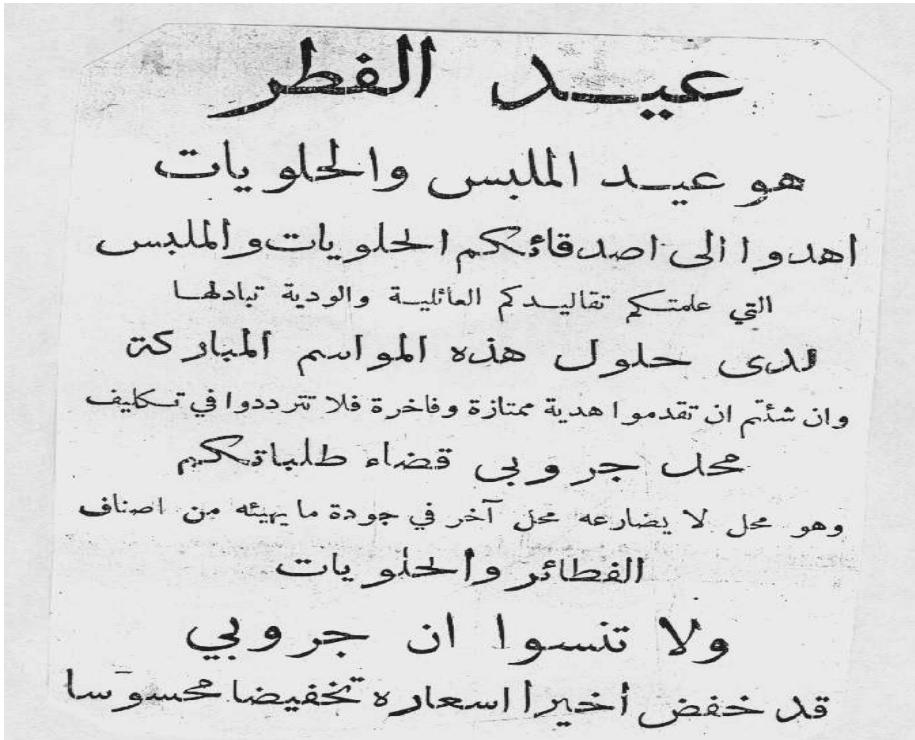 عيد الفطر
هو عيد الملبس والحلويات
اهدوا الى اصدقائكم الحلويات والملبس
التي علمتكم تقاليدكم العائلية والودية تبادلها
لدى حلول هذه المواسم المباركة
وان شئتم ان تقدموا هدية ممتازة وفاخرة فلا تترددوا في تكليف
محل جروبى قضاء طلباتكم
وهو محل لا يضارعه محل آخر في جودة ما يهيئه من اصناف
الفطائر والحلويات
ولا تنسوا ان جروبي
قد خفض أخيرا اسعاره تخفيضا محسوسا